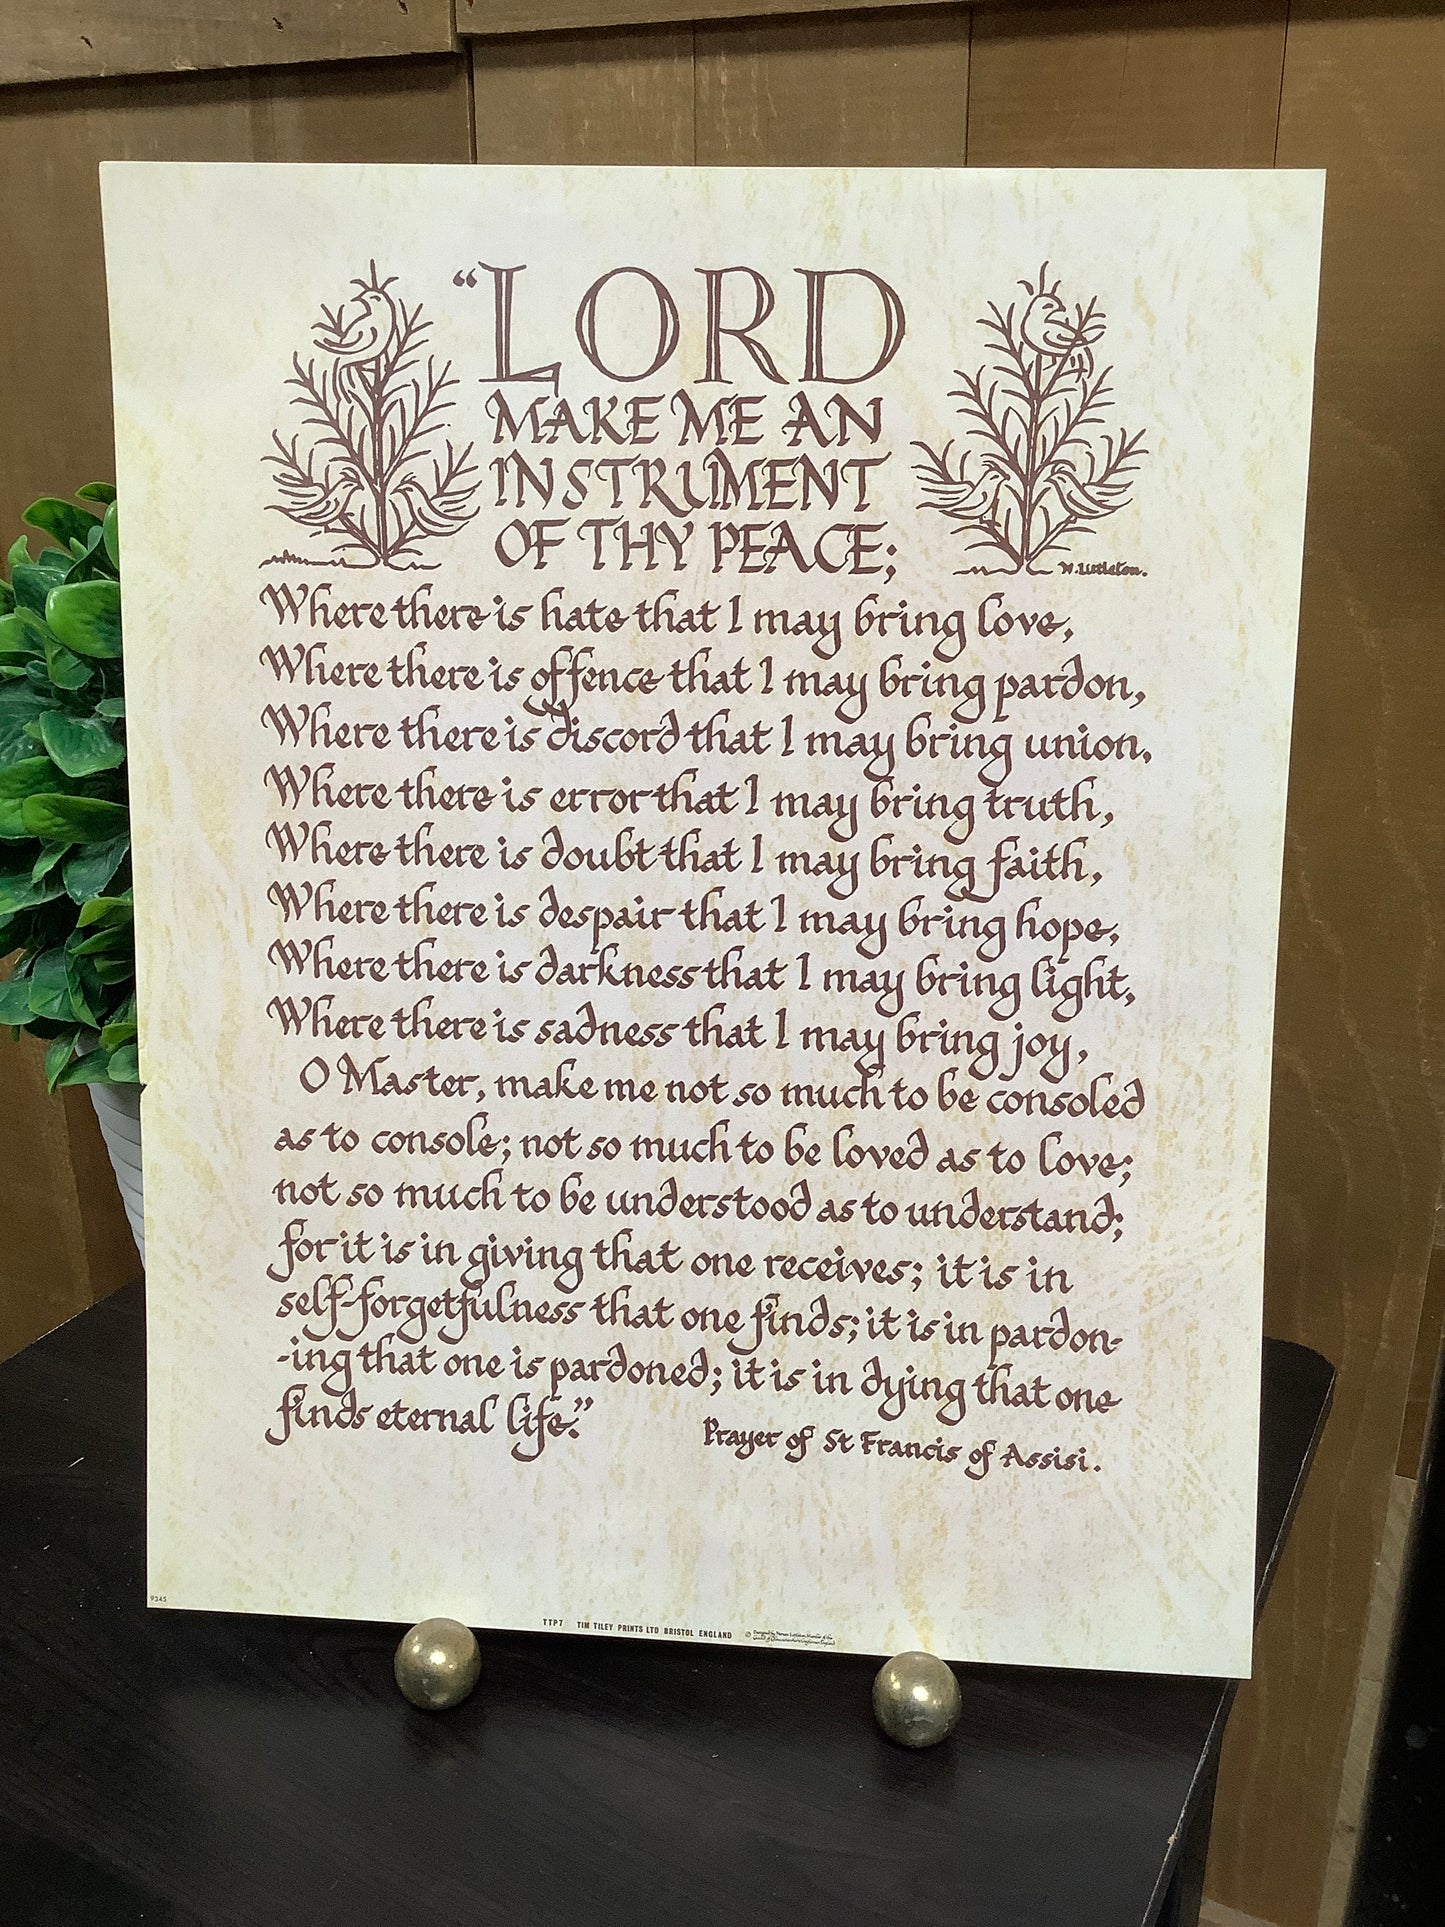 “LORD
MAKE ME AN
INSTRUMENT
OF THY PEACE;
W. Littleton.
Where there is hate that I may bring love,
Where there is offence that I may bring pardon,
Where there is discord that I may bring union,
Where there is error that I may bring truth,
Where there is doubt that I may bring faith,
Where there is despair that I may bring hope,
Where there is darkness that I may bring light,
Where there is sadness that I may bring joy,
O Master, make me not so much to be consoled
as to console; not so much to be loved as to love;
not so much to be understood as to understand;
for it is in giving that one receives; it is in
self-forgetfulness that one finds; it is in pardon-
-ing that one is pardoned; it is in dying that one
finds eternal life.”
Prayer of St Francis of Assisi.
9345
TTP7 TIM TILEY PRINTS LTD BRISTOL ENGLAND ©